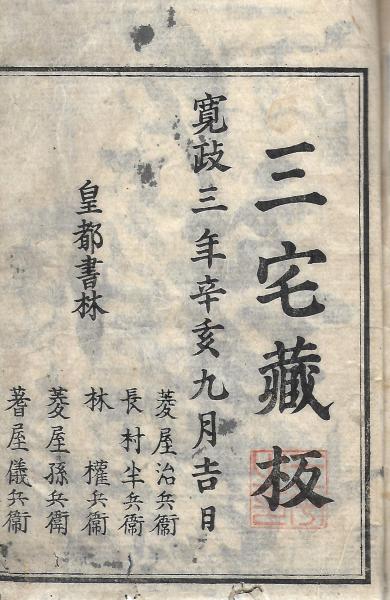 三宅藏板
寛政三年辛亥九月吉日
皇都書林
菱屋治兵衞
長村半兵衞
林權兵衞
菱屋孫兵衞
蓍屋儀兵衞